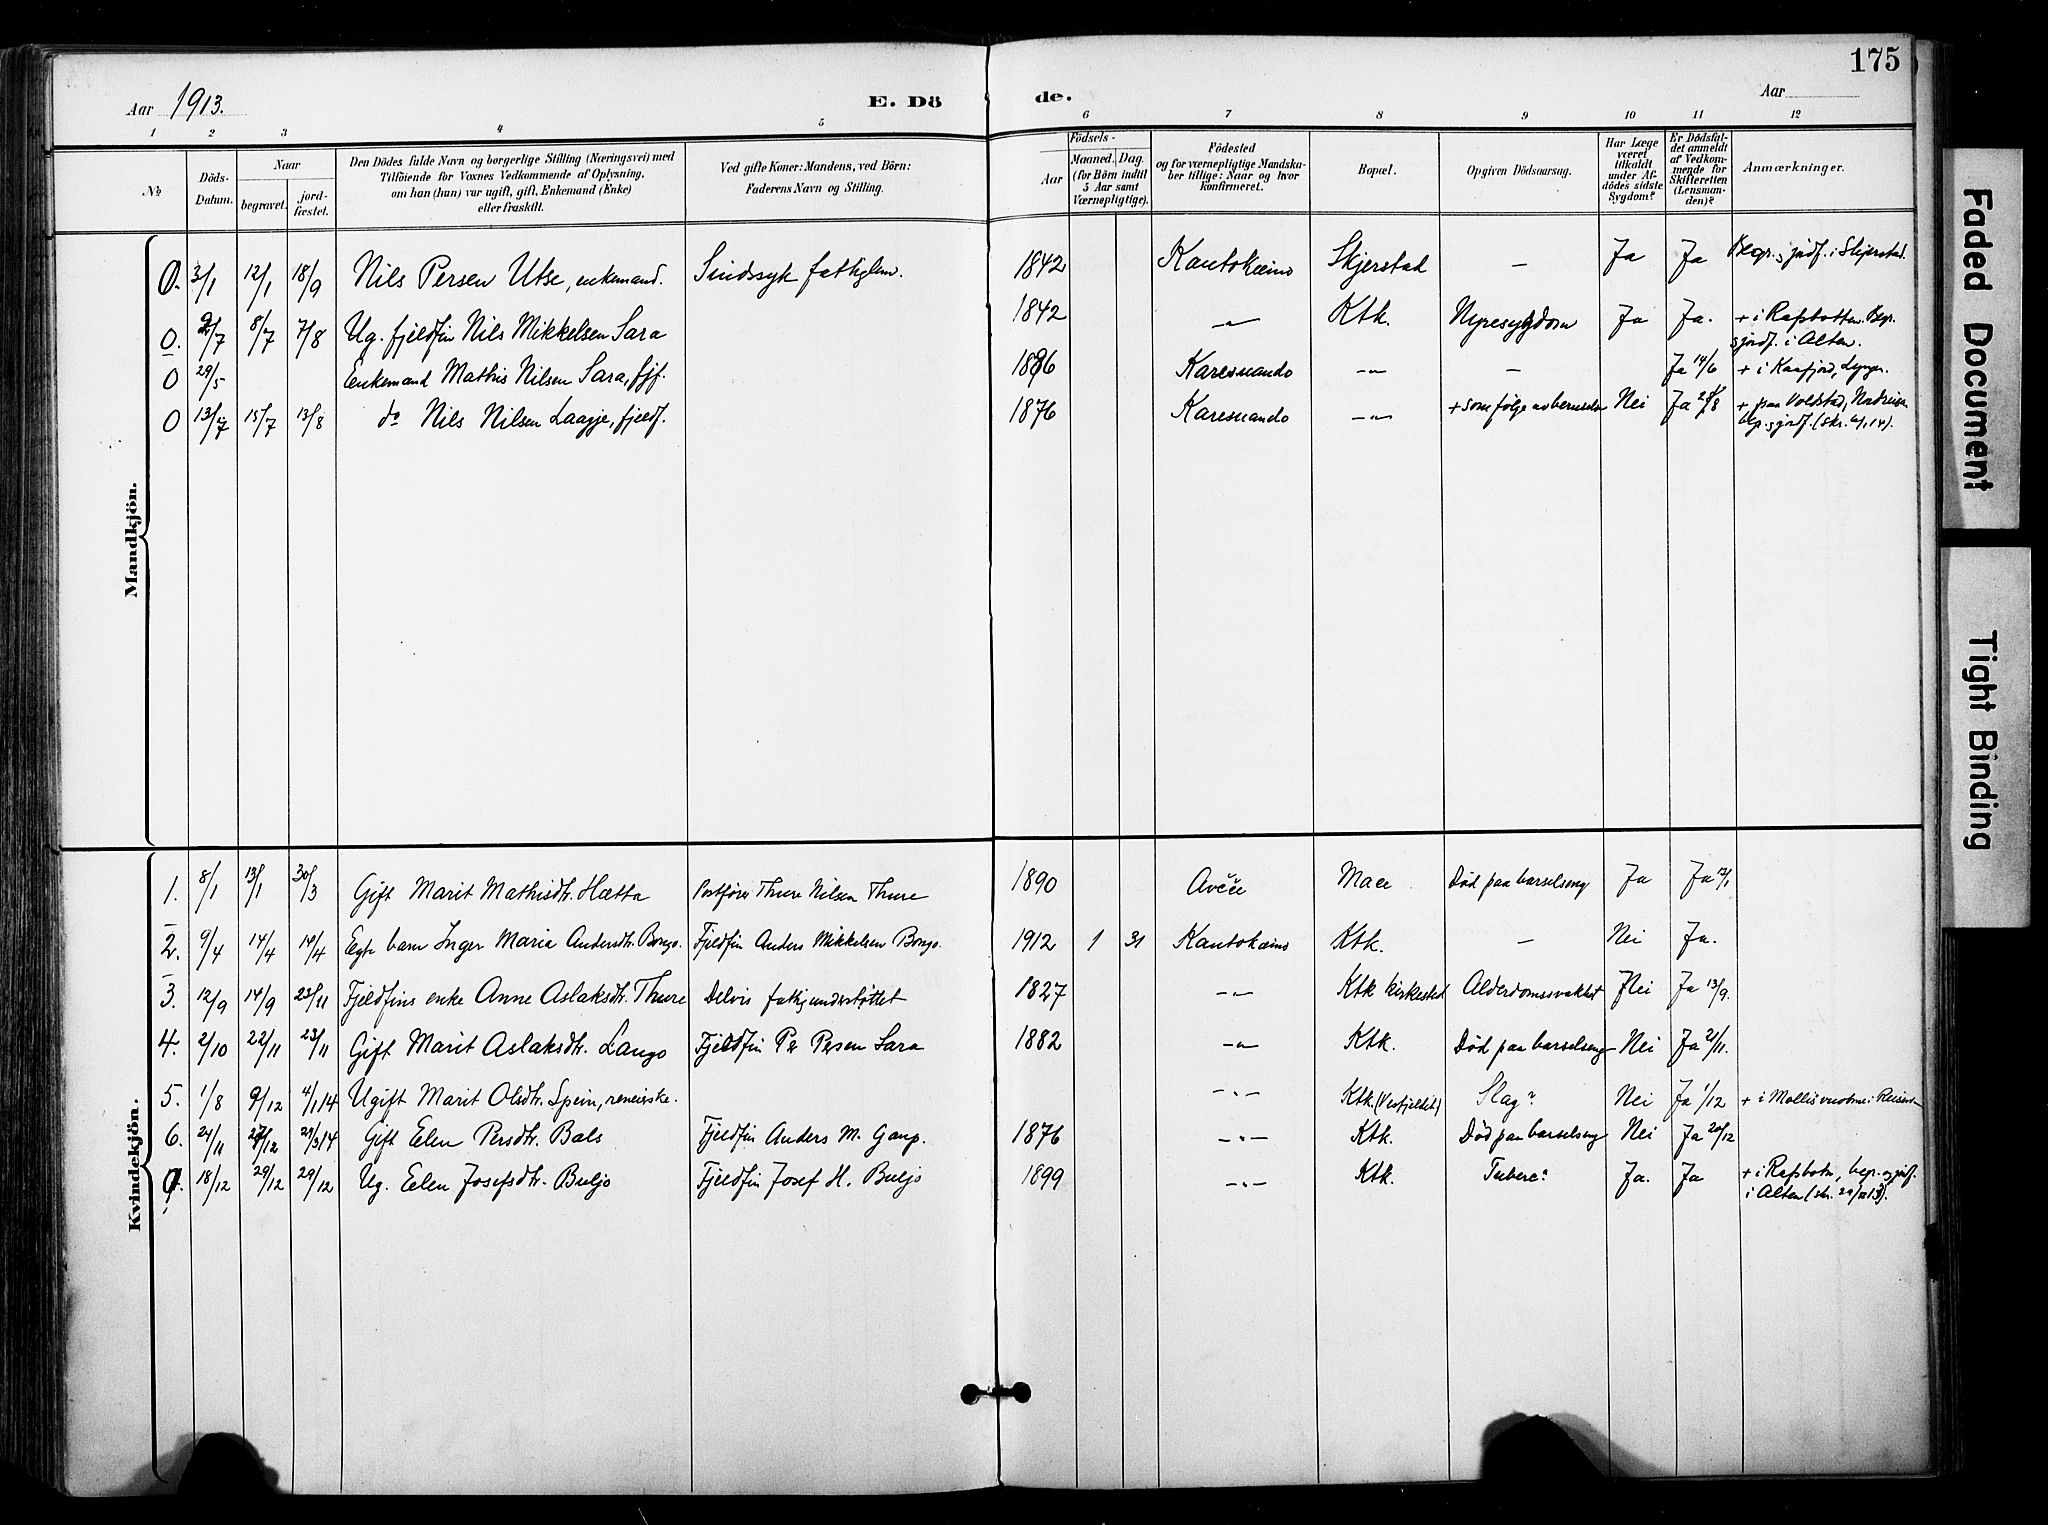 175
Aar 1913. E. Dö de. Aar
1 2 3 4 5 6 7 8 9 10 11 12
No
Döds-Datum.
Naar
begravet.
jord-fæstet.
Den Dödes fulde Navn og borgerlige Stilling (Næringsvei) med
Tilföiende for Voxnes Vedkommende af Oplysning,
om han (hun) var ugift, gift, Enkemand (Enke)
eller fraskilt.
Ved gifte Koner: Mandens, ved Börn:
Faderens Navn og Stilling.
Födsels-
Aar
Maaned. Dag.
(for Börn indtil
5 Aar samt
Værnepligtige).
Födested
og for værnepligtige Mandska-
ber tillige: Naar og hvor
konfirmeret.
Bopæl.
Opgiven Dödsaarsag.
Har Læge
været
tilkaldt
under Af-
dödes sidste
Sygdom?
Er Dödsfal-
det anmeldt
af Vedkom-
mende for
Skifteretten
(Lensman-
den)?
Anmærkninger.
Mandkjön.
0. 3/1 12/1 18/9 Nils Persen Utse, enkemand. Sindssyk fattiglem. 1842 Kautokeino Skjerstad — Ja Ja Begr. & jordf. i Skjerstad.
0. 2/7 8/7 7/8 Ug. fjeldfin Nils Mikkelsen Sara 1842 —"— Ktk. Nyresygdom Ja Ja. + i Rafsbotten. Begr.
& jordf. i Alten.
0 29/5 Eenkemand Mathis Nilsen Sara, fjf. Karesuando —"— — Ja 14/6 + i Kaafjord, Lyngen.
0 13/7 15/7 13/8 do Nils Nilsen Laagje, fjeldf. 1876 Karesuando —"— + som følge av beruselse Nei Ja + paa Voldstad, Nordreisa
& jordf.
Kvindekjön.
1. 8/1 13/1 30/3 Gift Marit Mathisdtr. Hætta Postfører Thure Nilsen Thure 1890 Avčče Mace Død paa barselseng Ja Ja 12/1
2. 9/4 14/4 14/4 Egte barn Inger Maria Andersdtr. Bongo. Fjeldfin Anders Mikkelsen Bongo. 1912 1 31 Kautokeino Ktk. — Nei Ja.
3. 12/9 14/9 23/11 Fjeldfins enke Anne Aslaksdtr. Thure Delvis fattigunderstøttet 1827 —"— Ktk kirkested Alderdomssvakhet Nei Ja 13/9.
4. 2/10 22/11 23/11 Gift Marit Aslaksdtr. Lango Fjeldfin Per Persen Sara 1882 —"— Ktk. Død paa barselseng Nei Ja 21/11.
5. 1/8 9/12 4/1 14 Ugift Marit Olsdtr. Spein, reneierske. —"— Ktk. (Vestfjeldet) Slag? Nei Ja 1/12 + i Mollisvuobme i Reisen
6. 24/11 27/12 29/3 14 Gift Elen Persdtr. Bals Fjeldfin Anders M. Gaup. 1876 —"— Ktk. Død paa barselseng Nei Ja 20/12
0. 18/12 29/12 29/12 Ug. Elen Josefsdtr. Buljo Fjeldfin Josef H. Buljo 1899 —"— Ktk. Tuberc? Ja. Ja + i Rafsbotn, begr. & jordf.
i Alten
Faded Document
Tight Binding